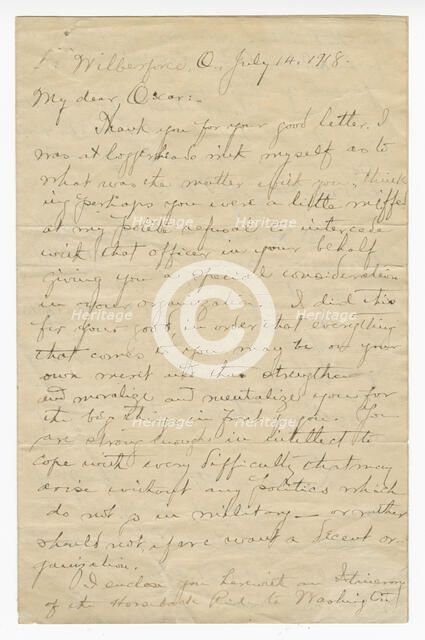 Wilberforce, O., July 14, 1918.
My dear Oscar:-
Thank you for your good letter. I
was at loggerheads with myself as to
what was the matter with you, think
ing perhaps you were a little miffed
at my polite refusal to intercede
with that officer in your behalf
giving you a special consideration
in your organization. I did this
for your good in order that everything
that comes to you may be on your
own merit and thus strengthen
and moralize and mentalize you for
the big things in front of you. You
are strong enough in intellect to
cope with every difficulty that may
arise without any politics which
do not go in military — or rather
should not, if we want a decent or-
ganization.
I enclose you herewith an Itinerary
of the Horseback Ride to Washington
Heritage
Heritage
Heritage
Heritage
Heritage
Heritage
Heritage
Heritage